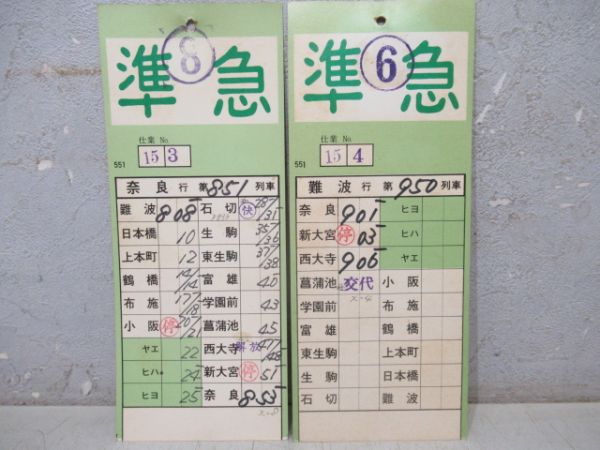 8
準急
仕業 No.
15 3
551
奈良 行 第 851 列車
難波 8 08
日本橋 10
上本町 12
鶴橋 14
布施 17/18
小阪 停 20/21
ヤエ 22
ヒハ 24
ヒヨ 25
石切 快 29/31
生駒 35/36
東生駒 37/38
富雄 40
学園前 43
菖蒲池 45
西大寺 解放 47/48
新大宮 停 51
奈良 8 53
X-8
6
準急
仕業 No.
15 4
551
難波 行 第 950 列車
奈良 9 01
新大宮 停 03
西大寺 9 06
菖蒲池 交代
X-4
学園前
富雄
東生駒
生駒
石切
ヒヨ
ヒハ
ヤエ
小阪
布施
鶴橋
上本町
日本橋
難波